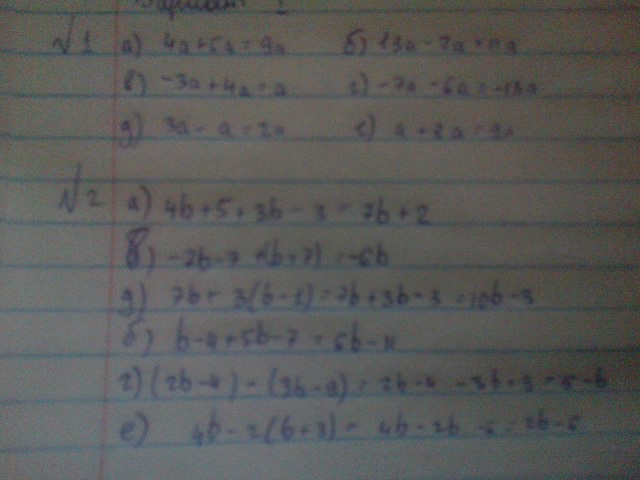 Вариант 1
№1 а) 4a+5a=9a б) 13a-2a=11a
в) -3a+4a=a г) -7a-6a=-13a
д) 3a-a=2a е) a+8a=9a
№2 а) 4b+5+3b-3=7b+2
в) -2b-7+(b+7)=-6b
д) 7b+3(b-1)=7b+3b-3=10b-3
б) b-4+5b-7=6b-11
г) (2b-4)-(3b-9)=2b-4-3b+9=5-b
е) 4b-2(b+3)=4b-2b-6=2b-6